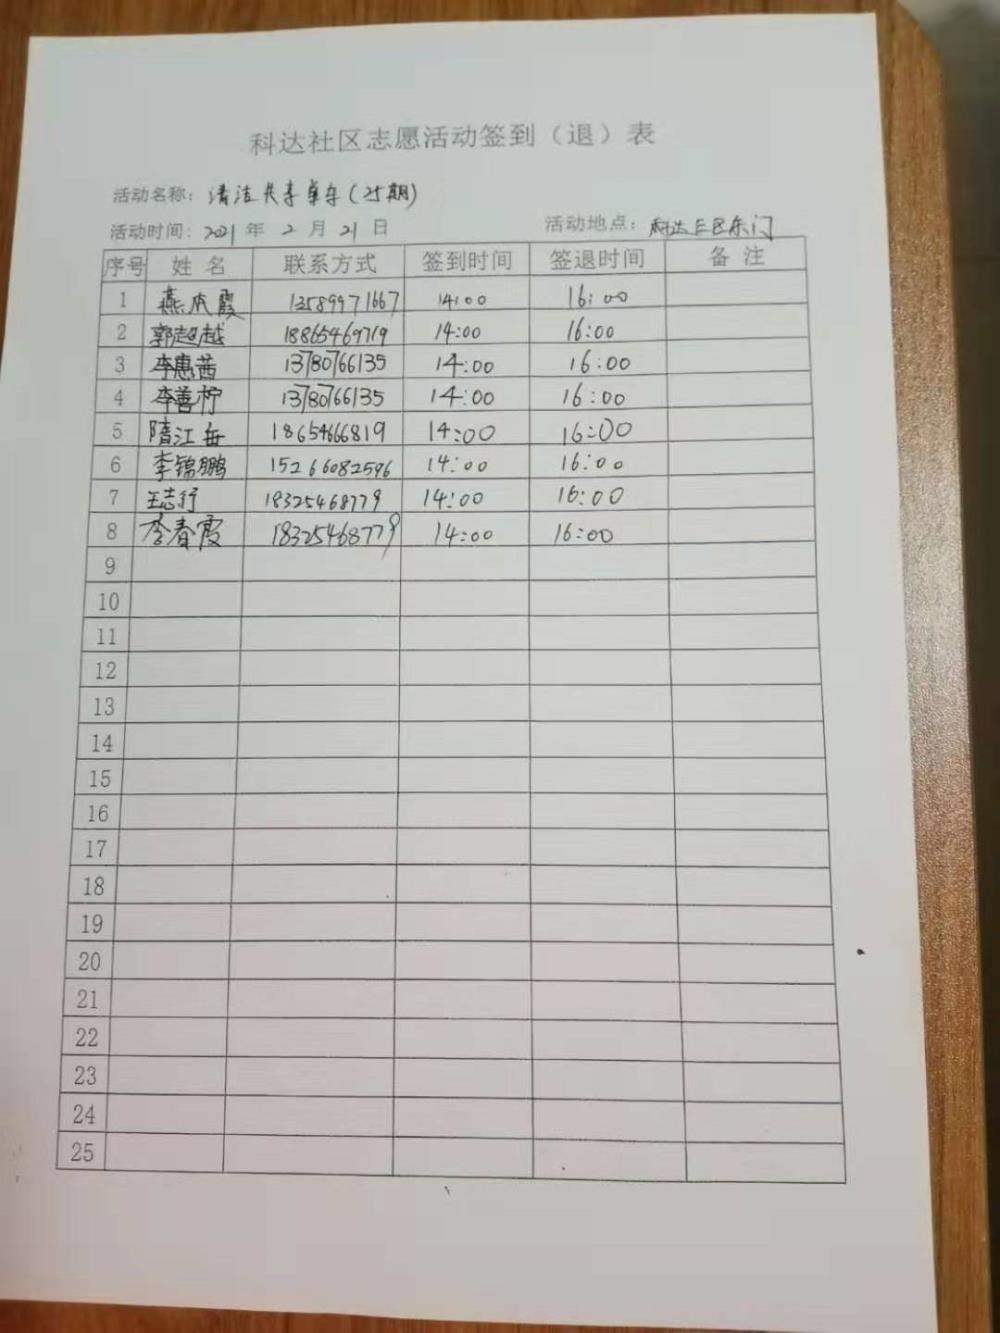 科达社区志愿活动签到（退）表
活动名称：清洁共享单车(25期)
活动时间：2021 年 2 月 21 日 活动地点：科达三区东门
序号 姓名 联系方式 签到时间 签退时间 备注
1 燕本霞 13589971667 14:00 16:00
2 郭超越 18865469719 14:00 16:00
3 李惠茜 13780766135 14:00 16:00
4 李善柠 13780766135 14:00 16:00
5 隋江岳 18654666819 14:00 16:00
6 李锦鹏 15266082596 14:00 16:00
7 王志行 18325468779 14:00 16:00
8 李春霞 18325468779 14:00 16:00
9
10
11
12
13
14
15
16
17
18
19
20
21
22
23
24
25